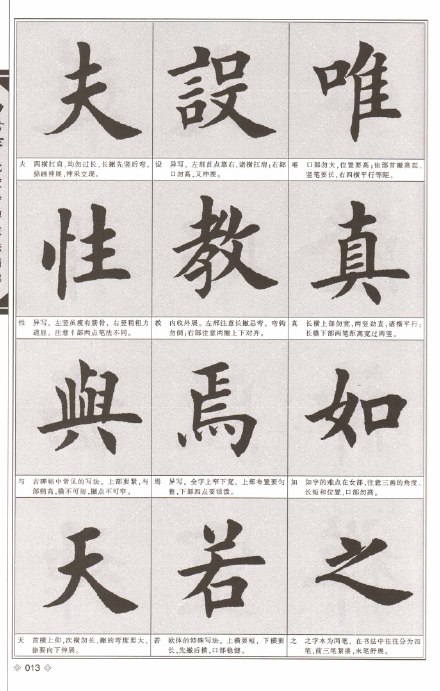 夫 設 唯
夫 两横扛肩,均勿过长,长撇先竖后弯,
捺画伸展,神采立现。
设 异写。左部首点靠右,诸横扛肩;右部
口勿高,又伸展。
唯 口部勿大,位置要高;隹部首撇高起,
竖笔要长,右四横平行等距。
性 教 真
性 异写。左竖虽瘦有筋骨,右竖稍粗力
遒胫。注意忄部两点笔法不同。
教 内收外展。左部注意长撇忌弯,弯钩
勿倒;右部注意两撇上下对齐。
真 长横上部勿宽,两竖劲直,诸横平行;
长横下部两笔距离宽过两竖。
與 焉 如
与 古碑帖中常见的写法。上部要紧,与
部稍高,横不可短,撇点不可窄。
焉 异写。全字上窄下宽。上部布置要匀
整,下部四点要活泼。
如字的难点在女部,注意三画的角度、
长短和位置,口部勿高。
天 若 之
天 首横上仰,次横勿长,撇的弯度要大,
捺要向下伸展。
若 欧体的特殊写法。上横要短,下横要
长,先撇后横,口部稳健。
之 之字本为四笔。在书法中往往分为四
笔,前三笔紧凑,末笔舒展。
013